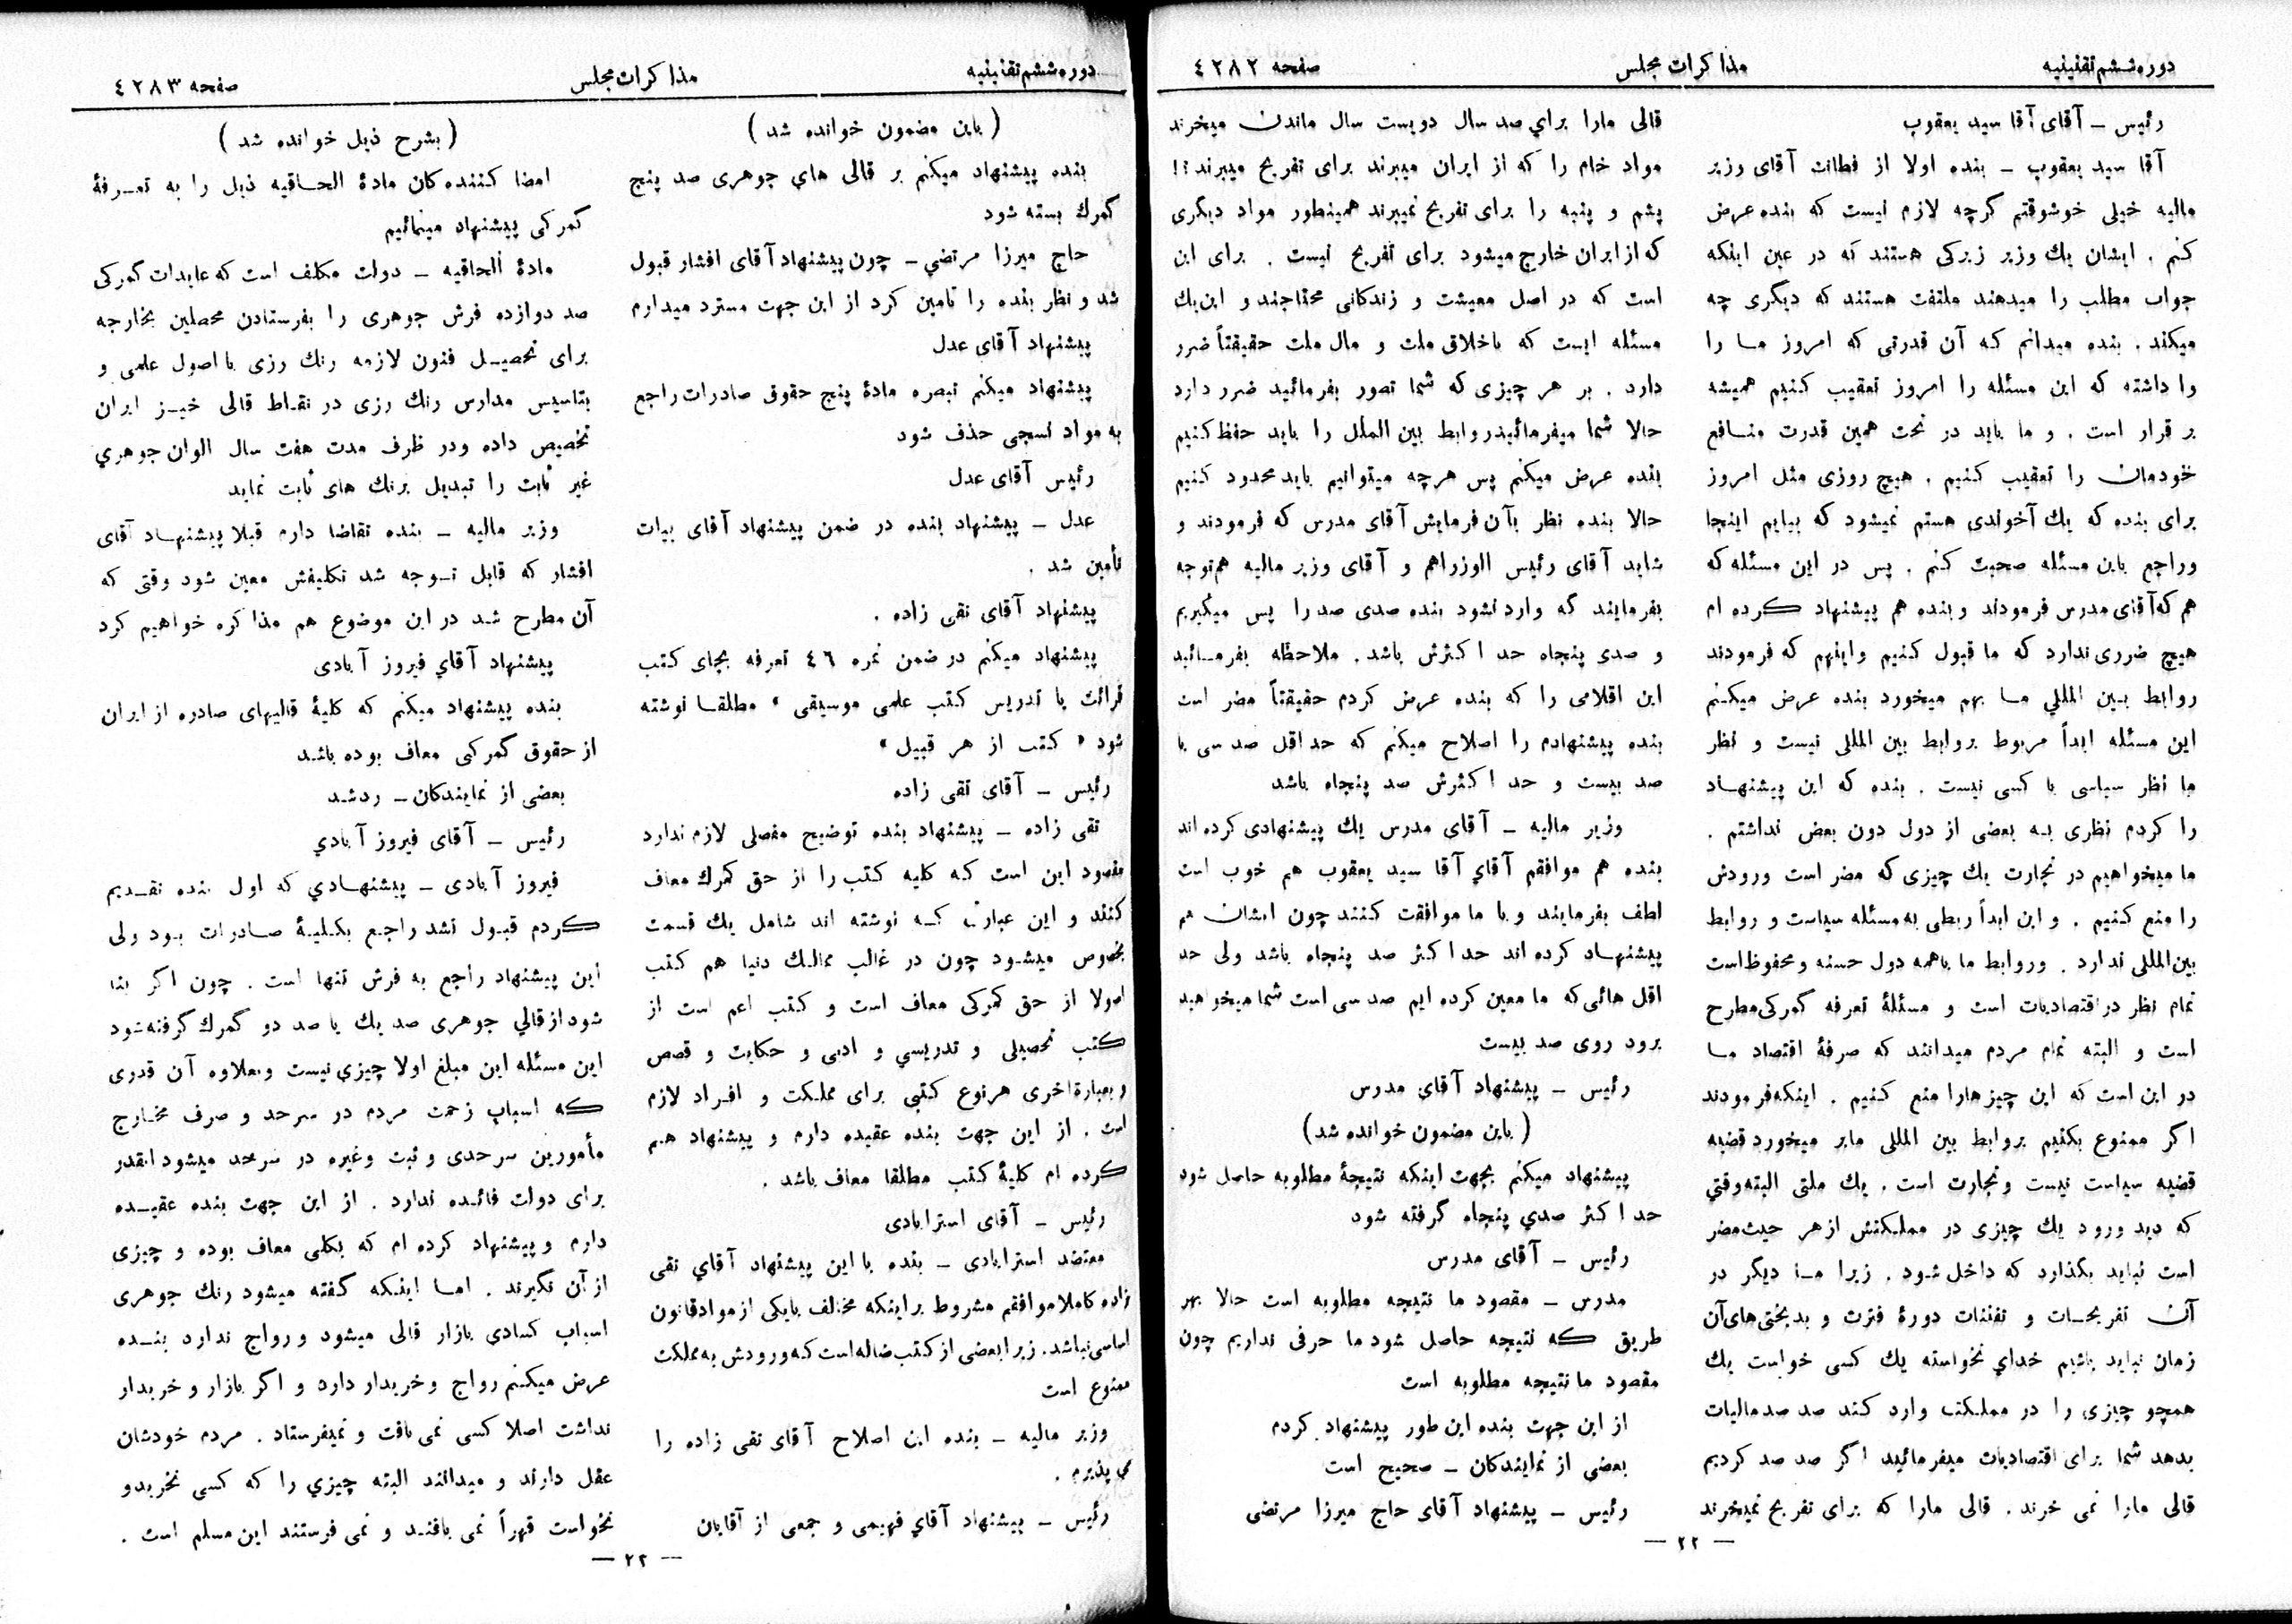 دوره ششم تقنینیه
مذاکرات مجلس
صفحه ٤٢٨٢
رئیس ــ آقای آقا سید یعقوب
آقا سید یعقوب ــ بنده اولا از فطانت آقای وزیر
مالیه خیلی خوشوقتم گرچه لازم نیست که بنده عرض
کنم . ایشان یك وزیر زیرکی هستند که در عین اینکه
جواب مطلب را میدهند ملتفت هستند که دیگری چه
میکند . بنده میدانم که آن قدرتی که امروز ما را
وا داشته که این مسئله را امروز تعقیب کنیم همیشه
بر قرار است . و ما باید در تحت همین قدرت منافع
خودمان را تعقیب کنیم . هیچ روزی مثل امروز
برای بنده که یك آخوندی هستم نمیشود که بیایم اینجا
وراجع باین مسئله صحبت کنم . پس در این مسئله که
هم که آقای مدرس فرمودند و بنده هم پیشنهاد کرده ام
هیچ ضرری ندارد که ما قبول کنیم واینهم که فرمودند
روابط بین المللي ما بهم میخورد بنده عرض میکنم
این مسئله ابداً مربوط بروابط بین المللی نیست و نظر
ما نظر سیاسی با کسی نیست . بنده که این پیشنهاد
را کردم نظری به بعضی از دول دون بعض نداشتم .
ما میخواهیم در تجارت یك چیزی که مضر است ورودش
را منع کنیم . و این ابداً ربطی به مسئله سیاست و روابط
بین المللی ندارد . وروابط ما باهمه دول حسنه ومحفوظ است
تمام نظر در اقتصادیات است و مسئلهٔ تعرفه گمرکی مطرح
است و البته تمام مردم میدانند که صرفهٔ اقتصاد ما
در این است که این چیزهارا منع کنیم . اینکه فرمودند
اگر ممنوع بکنیم بروابط بین المللی ما بر میخورد قضیه
قضیه سیاست نیست و تجارت است . یك ملتی البته وقتي
که دید ورود یك چیزی در مملکتش از هر حیث مضر
است نباید بگذارد که داخل شود . زیرا ما دیگر در
آن تفریحات و تفننات دورهٔ فترت و بدبختی های آن
زمان نباید باشیم خدای نخواسته یك کسی خواست یك
همچو چیزی را در مملکت وارد کند صد صد مالیات
بدهد شما برای اقتصادیات میفرمائید اگر صد صد کردیم
قالی مارا نمی خرند . قالی مارا که برای تفریح نمیخرند
قالی مارا براي صد سال دویست سال ماندن میخرند
مواد خام را که از ایران میبرند برای تفریح میبرند ؟ !
پشم و پنبه را برای تفریح نمیبرند همینطور مواد دیگری
که از ایران خارج میشود برای تفریح نیست . برای این
است که در اصل معیشت و زندگانی محتاجند و این یك
مسئله ایست که باخلاق ملت و مال ملت حقیقتاً ضرر
دارد . بر هر چیزی که شما تصور بفرمائید ضرر دارد
حالا شما میفرمائید روابط بین الملل را باید حفظ کنیم
بنده عرض میکنم پس هرچه میتوانیم باید محدود کنیم
حالا بنده نظر بآن فرمایش آقای مدرس که فرمودند و
شاید آقای رئیس الوزراهم و آقای وزیر مالیه هم توجه
بفرمایند که وارد نشود بنده صدی صد را پس میگیریم
و صدی پنجاه حد اکثرش باشد . ملاحظه بفرمائید
این اقلامی را که بنده عرض کردم حقیقتاً مضر است
بنده پیشنهادم را اصلاح میکنم که حداقل صد سی یا
صد بیست و حد اکثرش صد پنجاه باشد
وزیر مالیه ــ آقای مدرس یك پیشنهادی کرده اند
بنده هم موافقم آقاي آقا سید یعقوب هم خوب است
لطف بفرمایند و با ما موافقت کنند چون ایشان هم
پیشنهاد کرده اند حد اکثر صد پنجاه باشد ولی حد
اقل هائی که ما معین کرده ایم صد سی است شما میخواهید
برود روی صد بیست
رئیس ــ پیشنهاد آقای مدرس
( باین مضمون خوانده شد )
پیشنهاد میکنم بجهت اینکه نتیجهٔ مطلوبه حاصل شود
حد اکثر صدي پنجاه گرفته شود
رئیس ــ آقای مدرس
مدرس ــ مقصود ما نتیجه مطلوبه است حالا بهر
طریق که نتیجه حاصل شود ما حرفی نداریم چون
مقصود ما نتیجه مطلوبه است
از این جهت بنده این طور پیشنهاد کردم
بعضی از نمایندکان ــ صحیح است
رئیس ــ پیشنهاد آقای حاج میرزا مرتضی
— ٢٢ —
دوره ششم تقنینیه
مذاکرات مجلس
صفحه ٤٢٨٣
( باین مضمون خوانده شد )
بنده پیشنهاد میکنم بر قالی هاي جوهری صد پنج
گمرك بسته شود
حاج میرزا مرتضي ــ چون پیشنهاد آقای افشار قبول
شد و نظر بنده را تامین کرد از این جهت مسترد میدارم
پیشنهاد آقای عدل
پیشنهاد میکنم تبصره مادهٔ پنج حقوق صادرات راجع
به مواد نسجی حذف شود
رئیس آقای عدل
عدل ــ پیشنهاد بنده در ضمن پیشنهاد آقای بیات
تأمین شد .
پیشنهاد آقای تقی زاده .
پیشنهاد میکنم در ضمن نمره ٤٦ تعرفه بجای کتب
قرائت یا تدریس کتب علمی موسیقی « مطلقا نوشته
شود « کتب از هر قبیل »
رئیس ــ آقای تقی زاده
تقی زاده ــ پیشنهاد بنده توضیح مفصلی لازم ندارد
مقصود این است که کلیه کتب را از حق گمرك معاف
کنند و این عبارت که نوشته اند شامل یك قسمت
بخصوص میشود چون در غالب ممالك دنیا هم کتب
اصولا از حق گمرکی معاف است و کتب اعم است از
کتب تحصیلی و تدریسي و ادبی و حکایت و قصص
و بعبارة اخری هر نوع کتبی برای مملکت و افراد لازم
است . از این جهت بنده عقیده دارم و پیشنهاد هم
کرده ام کلیهٔ کتب مطلقا معاف باشد .
رئیس ــ آقای استرابادی
معتضد استرابادی ــ بنده با این پیشنهاد آقاي تقی
زاده کاملا موافقم مشروط بر اینکه مخالف بایکی از مواد قانون
اساسی نباشد . زیرا بعضی از کتب ضاله است که ورودش به مملکت
ممنوع است
وزیر مالیه ــ بنده این اصلاح آقای تقی زاده را
می پذیرم .
رئیس ــ پیشنهاد آقاي فهیمی و جمعی از آقایان
( بشرح ذیل خوانده شد )
امضا کنندکان مادهٔ الحاقیه ذیل را به تعرفهٔ
گمرکی پیشنهاد مینمائیم
مادهٔ الحاقیه ــ دولت مکلف است که عایدات گمرکی
صد دوازده فرش جوهری را بفرستادن محصلین بخارجه
برای تحصیل فنون لازمه رنك رزی با اصول علمی و
بتاسیس مدارس رنك رزی در نقاط قالی خیز ایران
تخصیص داده ودر ظرف مدت هفت سال الوان جوهري
غیر ثابت را تبدیل برنك های ثابت نماید
وزیر مالیه ــ بنده تقاضا دارم قبلا پیشنهاد آقای
افشار که قابل توجه شد تکلیفش معین شود وقتی که
آن مطرح شد در این موضوع هم مذاکره خواهیم کرد
پیشنهاد آقاي فیروز آبادی
بنده پیشنهاد میکنم که کلیهٔ قالیهای صادره از ایران
از حقوق گمرکی معاف بوده باشد
بعضی از نمایندکان ــ ردشد
رئیس ــ آقای فیروز آبادي
فیروز آبادی ــ پیشنهادي که اول بنده تقدیم
کردم قبول نشد راجع بکلیهٔ صادرات بود ولی
این پیشنهاد راجع به فرش تنها است . چون اگر بنا
شود از قالي جوهری صد یك یا صد دو گمرك گرفته شود
این مسئله این مبلغ اولا چیزی نیست وبعلاوه آن قدری
که اسباب زحمت مردم در سرحد و صرف مخارج
مأمورین سرحدی و ثبت وغیره در سرحد میشود انقدر
برای دولت فائده ندارد . از این جهت بنده عقیده
دارم و پیشنهاد کرده ام که بکلی معاف بوده و چیزی
از آن نگیرند . اما اینکه گفته میشود رنك جوهری
اسباب کسادی بازار قالی میشود و رواج ندارد بنده
عرض میکنم رواج وخریدار دارد و اگر بازار و خریدار
نداشت اصلا کسی نمی بافت و نمیفرستاد . مردم خودشان
عقل دارند و میدانند البته چیزي را که کسی نخریدو
نخواست قهراً نمی بافند و نمی فرستند این مسلم است .
— ٢٢ —